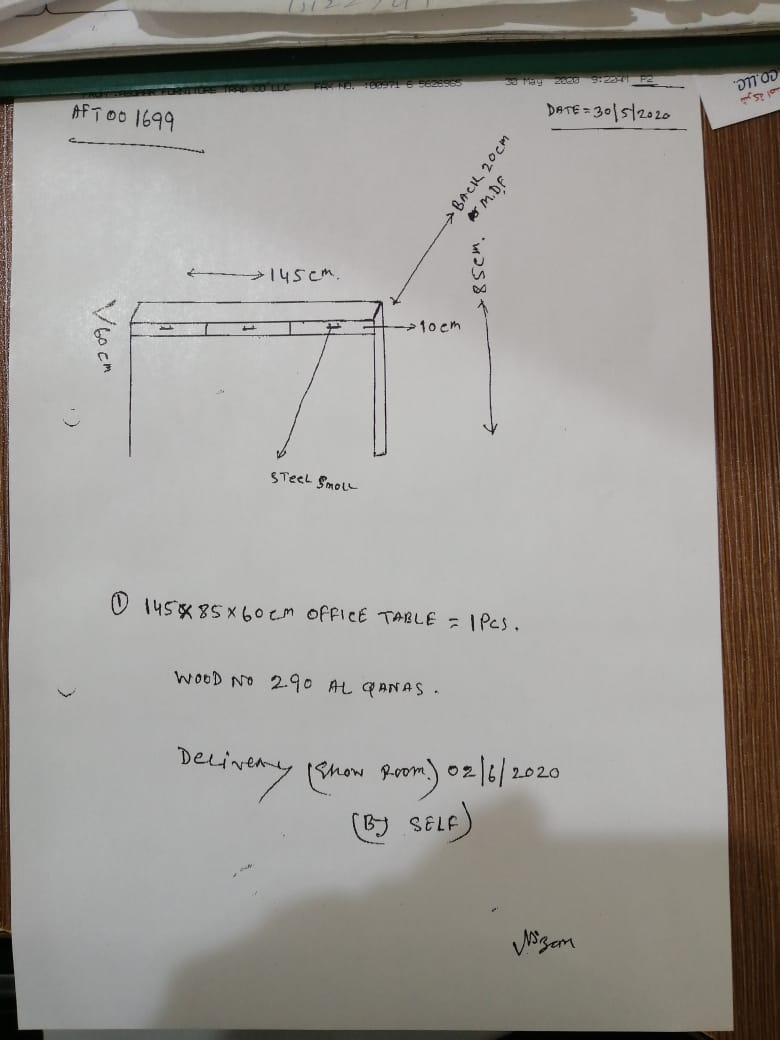 FURNITURE TRAD CO LLC FAX NO. :00971 6 5626965 30 May 2020 P2
CO.LLC.
AFT001699
DATE = 30/5/2020
BACK 20cm
M.D.F
85cm.
145cm.
60cm
10cm
STEEL SMOLL
① 145x85x60cm OFFICE TABLE = 1Pcs.
WOOD NO 290 AL QANAS.
Delivery (Show Room.) 02/6/2020
(By SELF)